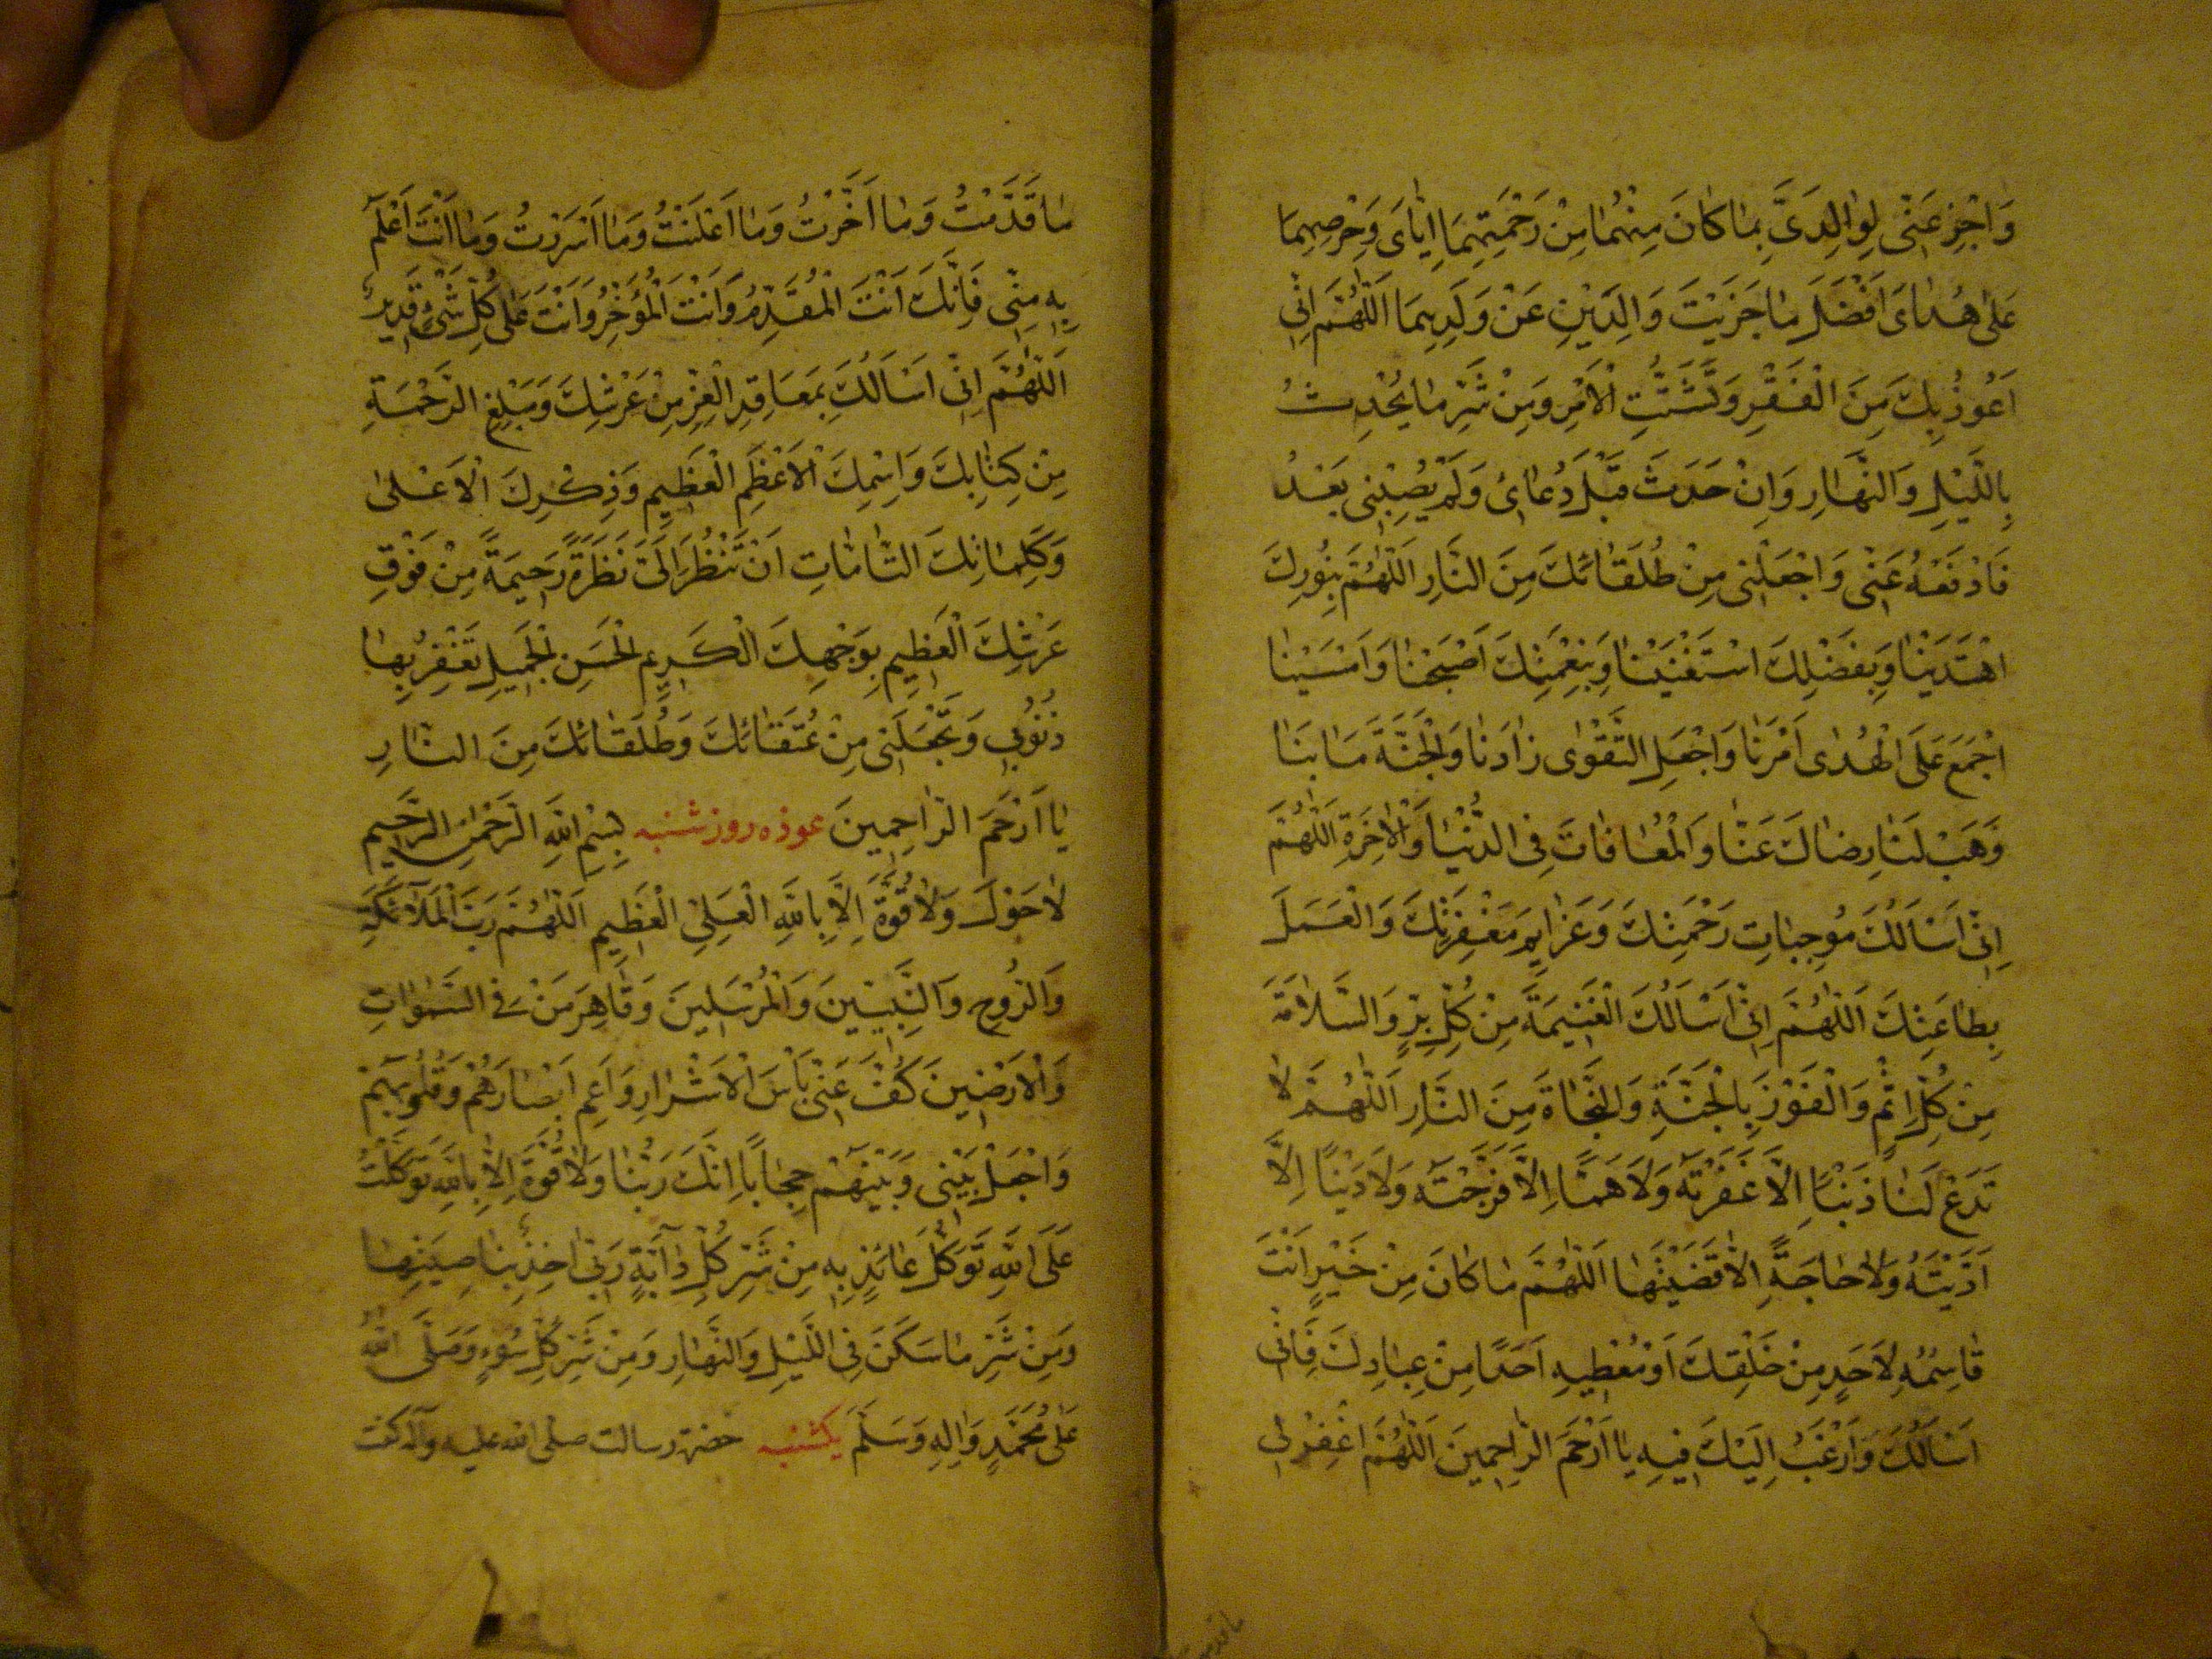 وَاجْزِ عَنّٖى لِوٰالِدَىَّ بِمٰا كٰانَ مِنْهُمٰا مِنْ رَحْمَتِهِمَا اِيّٰاىَ وَحِرْصِهِمَا
عَلىٰ هُدٰاىَ اَفْضَلَ مٰا جَزَيْتَ وَالِدَيْنِ عَنْ وَلَدِهِمَا اَللّٰهُمَّ اِنّٖى
اَعُوذُ بِكَ مِنَ الْفَقْرِ وَتَشَتُّتِ الْاَمْرِ وَمِنْ شَرِّ مٰا يُحْدِثُ
بِاللَّيْلِ وَالنَّهٰارِ وَاِنْ حَدَثَ قَبْلَ دُعٰائٖ وَلَمْ يُصِبْنٖى بَعْدُ
فَادْفَعْهُ عَنّٖى وَاجْعَلْنٖى مِنْ طُلَقٰائِكَ مِنَ النّٰارِ اَللّٰهُمَّ بِنُورِكَ
اهْتَدَيْنٰا وَبِفَضْلِكَ اسْتَغْنَيْنٰا وَبِنِعْمَتِكَ اَصْبَحْنٰا وَاَمْسَيْنٰا
اجْمَعْ عَلَى الْهُدٰى اَمْرَنٰا وَاجْعَلِ التَّقْوٰى زٰادَنٰا وَالْجَنَّةَ مَاٰبَنٰا
وَهَبْ لَنٰا رِضٰاكَ عَنّٰا وَالْمُعٰافٰاتَ فِى الدُّنْيٰا وَالْاٰخِرَةِ اَللّٰهُمَّ
اِنّٖى اَسْاَلُكَ مُوجِبٰاتِ رَحْمَتِكَ وَعَزٰايِمَ مَغْفِرَتِكَ وَالْعَمَلَ
بِطٰاعَتِكَ اَللّٰهُمَّ اِنّٖى اَسْاَلُكَ الْغَنٖيمَةَ مِنْ كُلِّ بِرٍّ وَالسَّلٰامَةَ
مِنْ كُلِّ اِثْمٍ وَالْفَوْزَ بِالْجَنَّةِ وَالنَّجٰاةَ مِنَ النّٰارِ اَللّٰهُمَّ لٰا
تَدَعْ لَنٰا ذَنْبًا اِلَّا غَفَرْتَهُ وَلَا هَمًّا اِلَّا فَرَّجْتَهُ وَلَا دَيْنًا اِلَّا
اَدَّيْتَهُ وَلٰا حٰاجَةً اِلّٰا قَضَيْتَهٰا اَللّٰهُمَّ مٰا كٰانَ مِنْ خَيْرٍ اَنْتَ
قٰاسِمُهُ لِاَحَدٍ مِنْ خَلْقِكَ اَوْ مُعْطٖيهِ اَحَدًا مِنْ عِبٰادِكَ فَاِنّٖى
اَسْاَلُكَ وَاَرْغَبُ اِلَيْكَ فٖيهِ يٰا اَرْحَمَ الرّٰاحِمٖينَ اَللّٰهُمَّ اغْفِرْ لٖى
مٰا قَدَّمْتُ وَمٰا اَخَّرْتُ وَمٰا اَعْلَنْتُ وَمٰا اَسْرَرْتُ وَمٰا اَنْتَ اَعْلَمُ
بِهٖ مِنّٖى فَاِنَّكَ اَنْتَ الْمُقَدِّمُ وَاَنْتَ الْمُؤَخِّرُ وَاَنْتَ عَلٰى كُلِّ شَىْءٍ قَدٖيرٌ
اَللّٰهُمَّ اِنّٖى اَسْاَلُكَ بِمَعٰاقِدِ الْعِزِّ مِنْ عَرْشِكَ وَمَبْلَغِ الرَّحْمَةِ
مِنْ كِتٰابِكَ وَاسْمِكَ الْاَعْظَمِ الْعَظٖيمِ وَذِكْرِكَ الْاَعْلىٰ
وَكَلِمٰاتِكَ التّٰامّٰاتِ اَنْ تَنْظُرَ اِلَىَّ نَظْرَةً رَحٖيمَةً مِنْ فَوْقِ
عَرْشِكَ الْعَظٖيمِ بِوَجْهِكَ الْكَرٖيمِ الْحَسَنِ الْجَمٖيلِ تَغْفِرُ بِهٰا
ذُنُوبٖى وَتَجْعَلُنٖى مِنْ عُتَقٰائِكَ وَطُلَقٰائِكَ مِنَ النّٰارِ
يٰا اَرْحَمَ الرّٰاحِمٖينَ عوذه روز شنبه بِسْمِ اللّٰهِ الرَّحْمٰنِ الرَّحٖيمِ
لٰا حَوْلَ وَلٰا قُوَّةَ اِلَّا بِاللّٰهِ الْعَلِىِّ الْعَظٖيمِ اَللّٰهُمَّ رَبَّ الْمَلٰٓائِكَةِ
وَالرُّوحِ وَالنَّبِيّٖينَ وَالْمُرْسَلٖينَ وَقٰاهِرَ مَنْ فِى السَّمٰوٰاتِ
وَالْاَرَضٖينَ كُفَّ عَنّٖى بَاْسَ الْاَشْرٰارِ وَاَعْمِ اَبْصٰارَهُمْ وَقُلُوبَهُمْ
وَاجْعَلْ بَيْنٖى وَبَيْنَهُمْ حِجٰابًا اِنَّكَ رَبُّنٰا وَلٰا قُوَّةَ اِلّٰا بِاللّٰهِ تَوَكَّلْتُ
عَلَى اللّٰهِ تَوَكُّلَ عٰائِذٍ بِهٖ مِنْ شَرِّ كُلِّ دٰٓابَّةٍ رَبّٖى اٰخِذٌ بِنٰاصِيَتِهٰا
وَمِنْ شَرِّ مٰا سَكَنَ فِى اللَّيْلِ وَالنَّهٰارِ وَمِنْ شَرِّ كُلِّ سُوءٍ وَصَلَّى اللّٰهُ
عَلىٰ مُحَمَّدٍ وَاٰلِهٖ وَسَلَّمَ يكشنبه حضرت رسالت صلى الله عليه وآله كفت